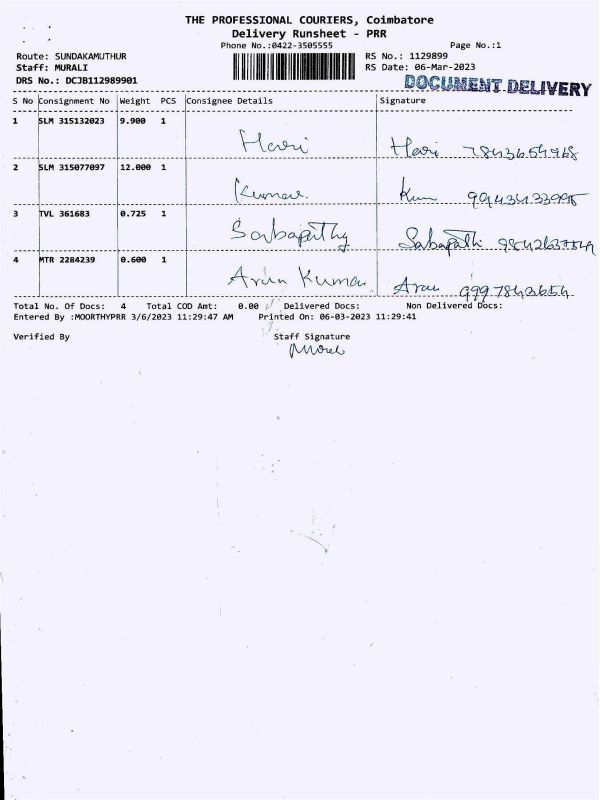 THE PROFESSIONAL COURIERS, Coimbatore
Delivery Runsheet - PRR
Phone No.:0422-3505555 Page No.:1
Route: SUNDAKAMUTHUR RS No.: 1129899
Staff: MURALI RS Date: 06-Mar-2023
DRS No.: DCJB112989901 DOCUMENT DELIVERY
S No Consignment No Weight PCS Consignee Details Signature
1 SLM 315132023 9.900 1
Hari Hari 7843654968
2 SLM 315077097 12.000 1
Kumar Kum
3 TVL 361683 0.725 1
Sabapathy Sabapathi
4 MTR 2284239 0.600 1
Arun Kumar Arun 9997843654
Total No. Of Docs: 4 Total COD Amt: 0.00 Delivered Docs: Non Delivered Docs:
Entered By :MOORTHYPRR 3/6/2023 11:29:47 AM Printed On: 06-03-2023 11:29:41
Verified By Staff Signature